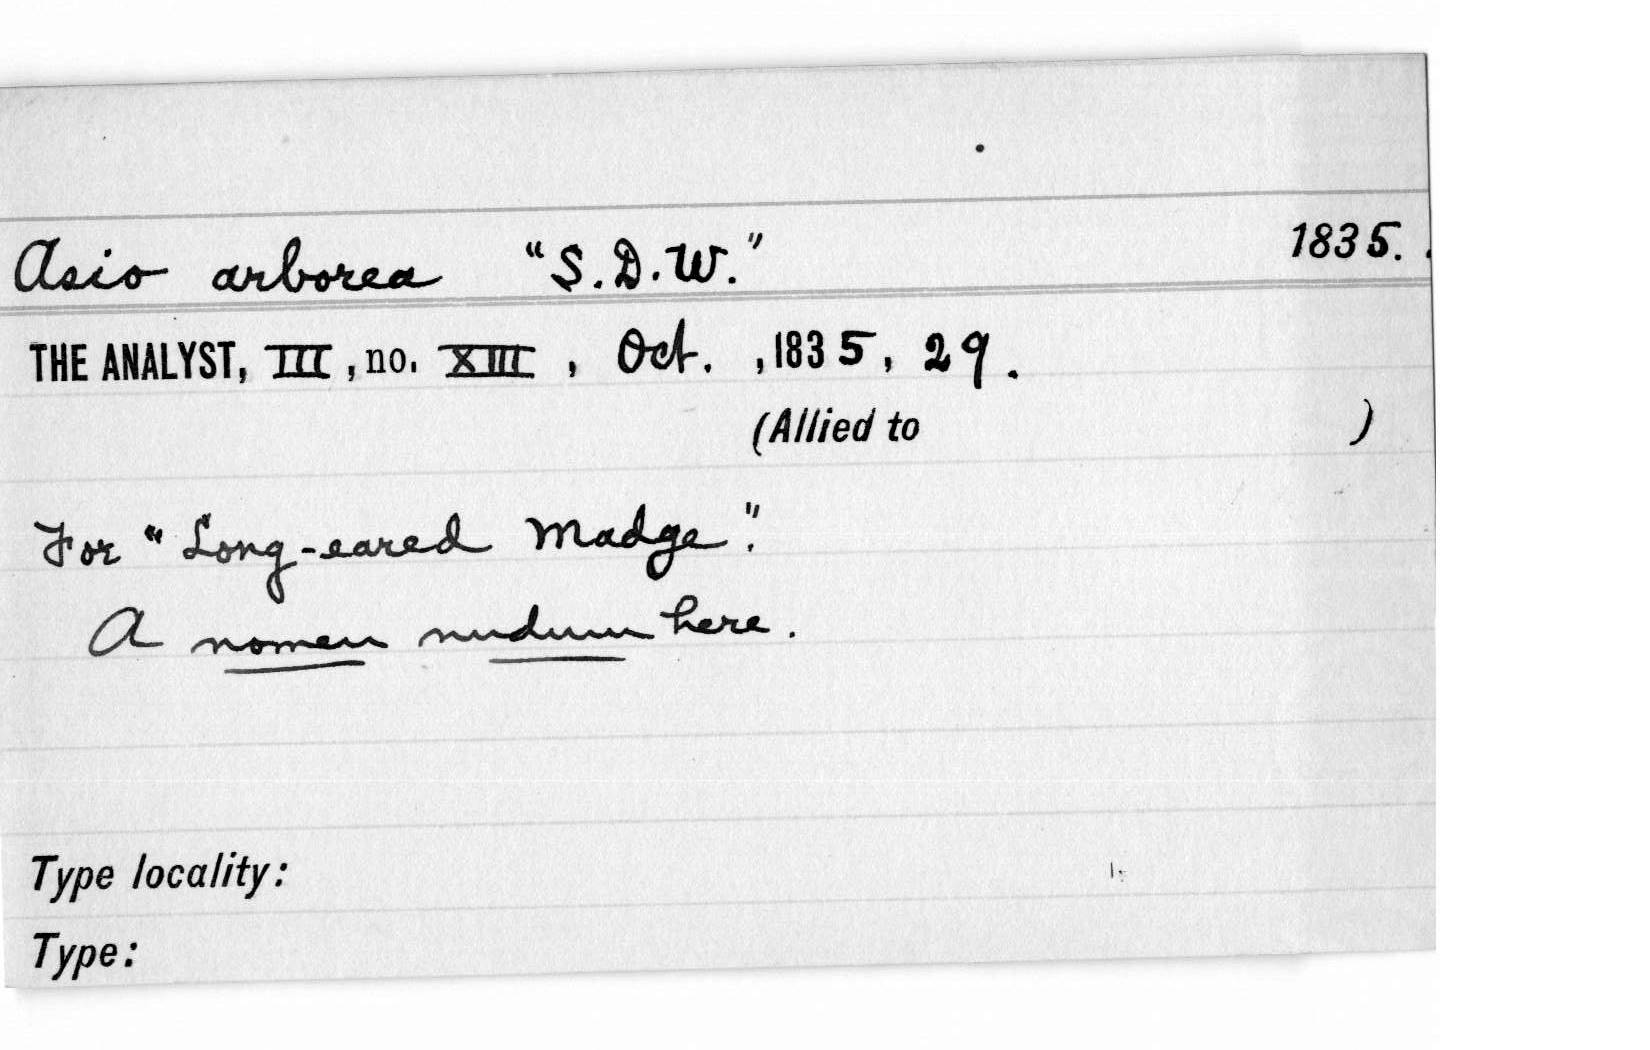 Asio arborea "S.D.W." 1835.
THE ANALYST, III, no. XIII, Oct. ,1835, 29.
(Allied to )
For "Long-eared Madge".
A nomen nudum here.
Type locality:
Type: